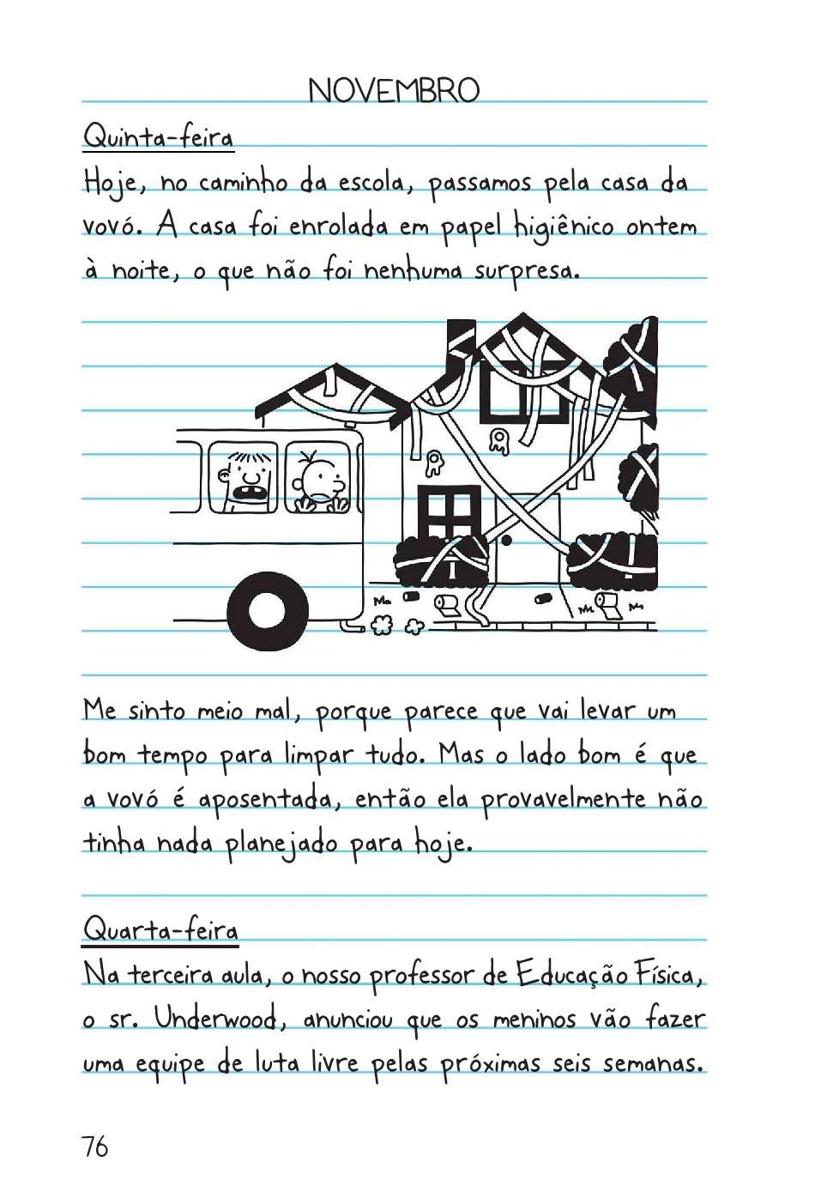 NOVEMBRO
Quinta-feira
Hoje, no caminho da escola, passamos pela casa da
vovó. A casa foi enrolada em papel higiênico ontem
à noite, o que não foi nenhuma surpresa.
Me sinto meio mal, porque parece que vai levar um
bom tempo para limpar tudo. Mas o lado bom é que
a vovó é aposentada, então ela provavelmente não
tinha nada planejado para hoje.
Quarta-feira
Na terceira aula, o nosso professor de Educação Física,
o sr. Underwood, anunciou que os meninos vão fazer
uma equipe de luta livre pelas próximas seis semanas.
76